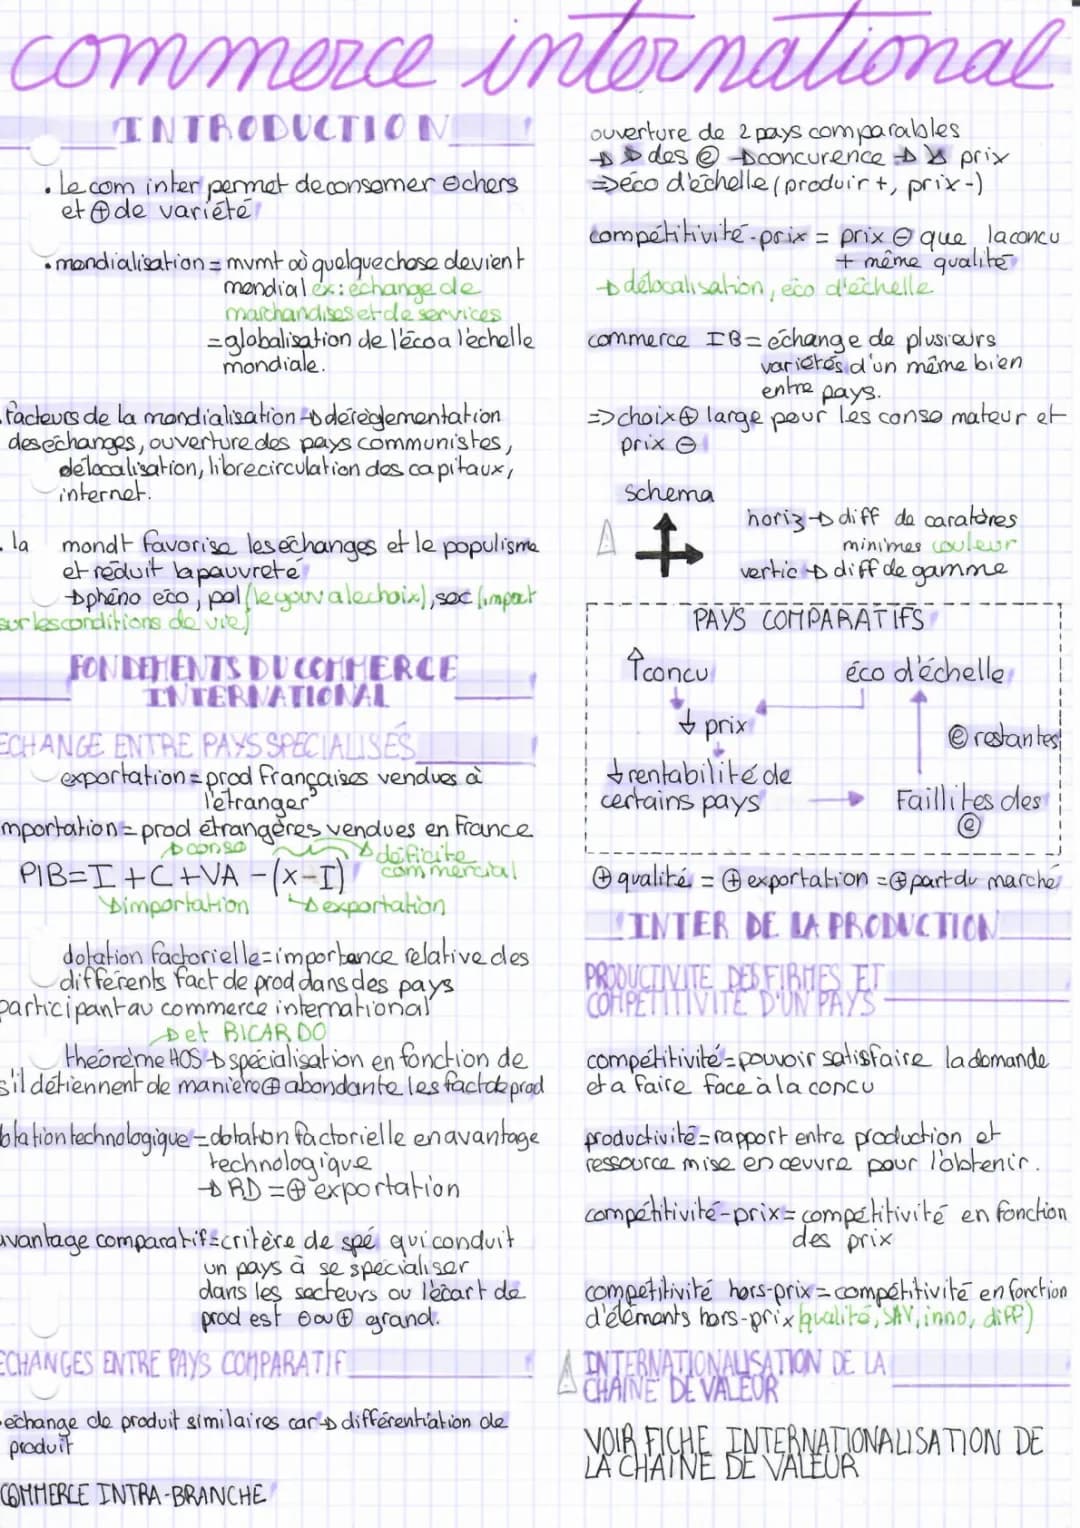 commerce international
INTRODUCTION
• Le com inter permet de consomer ⊖chers
et ⊕ de variété
• mondialisation = mvmt où quelque chose devient
mondial ex: échange de
marchandises et de services
= globalisation de l'éco a l'echelle
mondiale.
• facteurs de la mondialisation → déréglementation
des échanges, ouverture des pays communistes,
délocalisation, libre circulation des capitaux,
internet.
• la mondt favorise les échanges et le populisme
et réduit la pauvreté
→ phéno éco, pol (le gouv a le choix), soc (impact
sur les conditions de vie)
FONDEMENTS DU COMMERCE
INTERNATIONAL
ECHANGE ENTRE PAYS SPECIALISÉS
exportation = prod Françaises vendues à
l'étranger
mportation = prod étrangères vendues en France
→ conso → déficite
PIB = I + C + VA - (X-I) commercial
→ importation → exportation
dotation factorielle = importance relative des
différents fact de prod dans des pays
participant au commerce international
→ et RICARDO
théorème HOS → spécialisation en fonction de
s'il détiennent de manière ⊕ abondante les fact de prod
otation technologique = dotation factorielle en avantage
technologique
→ RD = ⊕ exportation
avantage comparatif = critère de spé qui conduit
un pays à se spécialiser
dans les secteurs ou l'écart de
prod est ⊖ ou ⊕ grand.
ECHANGES ENTRE PAYS COMPARATIF
• echange de produit similaires car → différentiation de
produit
COMMERCE INTRA-BRANCHE
ouverture de 2 pays comparables
→ ↗ des ⓔ → concurence → ↘ prix
⇒ éco d'échelle (produir +, prix -)
compétitivité-prix = prix ⊖ que la concu
+ même qualité
→ délocalisation, éco d'échelle
commerce IB = échange de plusieurs
variétés d'un même bien
entre pays.
⇒ choix ⊕ large pour les consomateur et
prix ⊖
schema
horiz → diff de caratères
minimes couleur
vertic → diff de gamme
PAYS COMPARATIFS
↑concu éco d'échelle
↓ prix
ⓔ restantes
↓ rentabilité de
certains pays → Faillites des
ⓔ
⊕ qualité = ⊕ exportation = ⊕ part du marché
INTER DE LA PRODUCTION
PRODUCTIVITE DES FIRMES ET
COMPETITIVITÉ D'UN PAYS
compétitivité = pouvoir satisfaire la demande
et a faire face à la concu
productivité = rapport entre production et
ressource mise en œuvre pour l'obtenir.
compétitivité-prix = compétitivité en fonction
des prix
competitivité hors-prix = compétitivité en fonction
d'éléments hors-prix (qualité, SAV, inno, diff)
INTERNATIONALISATION DE LA
CHAINE DE VALEUR
VOIR FICHE INTERNATIONALISATION DE
LA CHAINE DE VALEUR